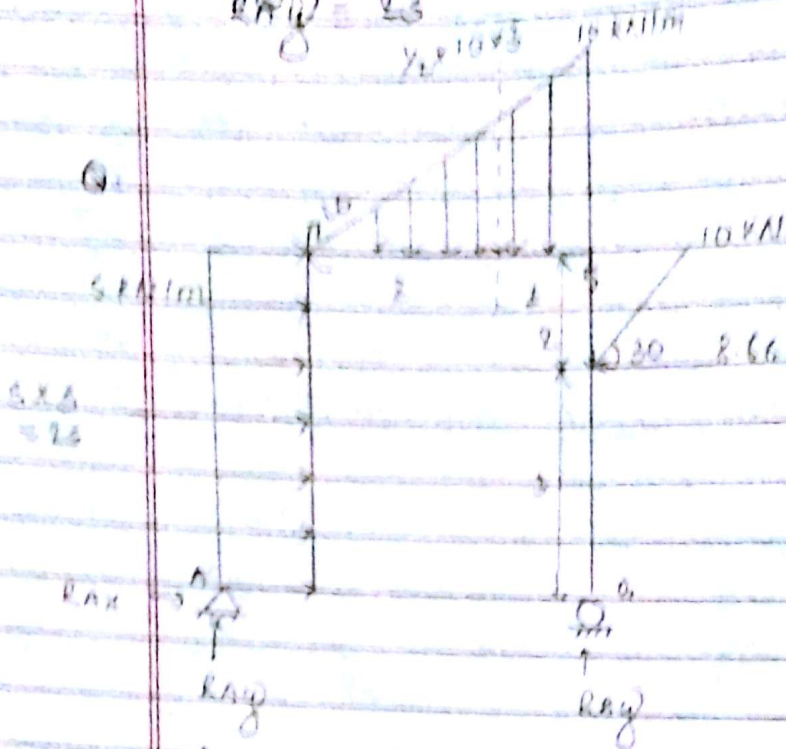 RAy = 25
1/2 x 10 x 3
10 kN/m
Q.
D
10 KN
5 KN/m
2
1
2
30 8.66
5 x 5
= 25
3
A
RAx
RAy
RBy